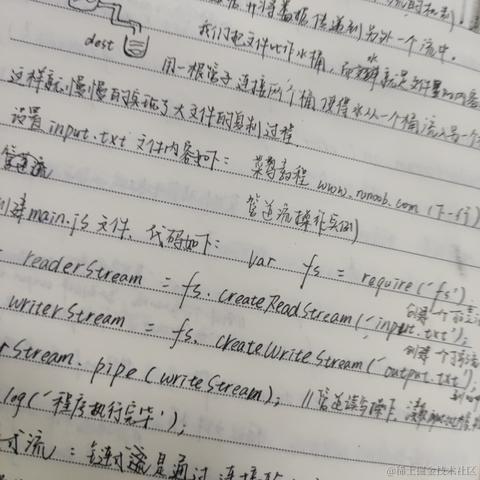 并将数据传递到另外一个流中。
dest 我们把文件比作水桶,而水就是文件里的内容
用一根管子连接两个桶使得水从一个桶流入另一个
这样就慢慢的实现了大文件的复制过程。
设置 input.txt 文件内容如下: 菜鸟教程 www.runoob.com (下一行)
管道流 管道流操作实例)
创建main.js 文件, 代码如下: var fs = require('fs');
readerStream = fs.createReadStream('input.txt'); 创建一个
writerStream = fs.createWriteStream('output.txt'); 创建一个
rStream.pipe(writeStream); //管道读写操作,读取
log('程序执行完毕');
式流:链式流是通过连接
@稀土掘金技术社区